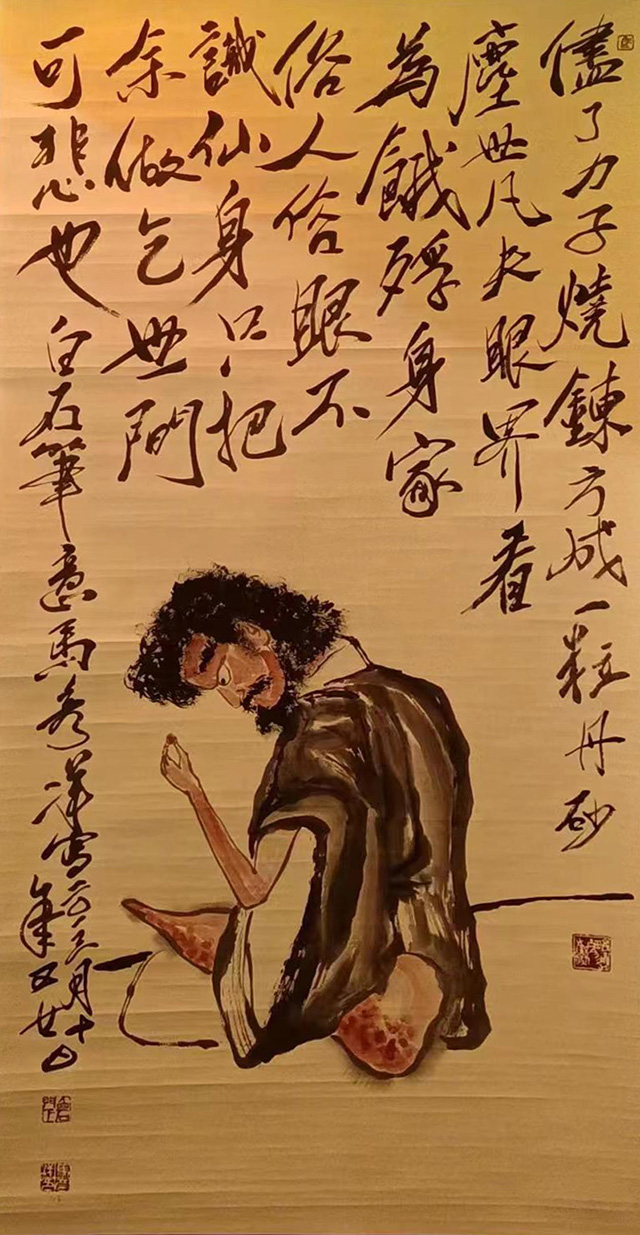 儘了力子燒鍊方成一粒丹砂
塵世凡夫眼界看
為餓殍身家
俗人俗眼不
識仙身只把
余做乞世間
可悲也 白石筆意馬秀洋寫